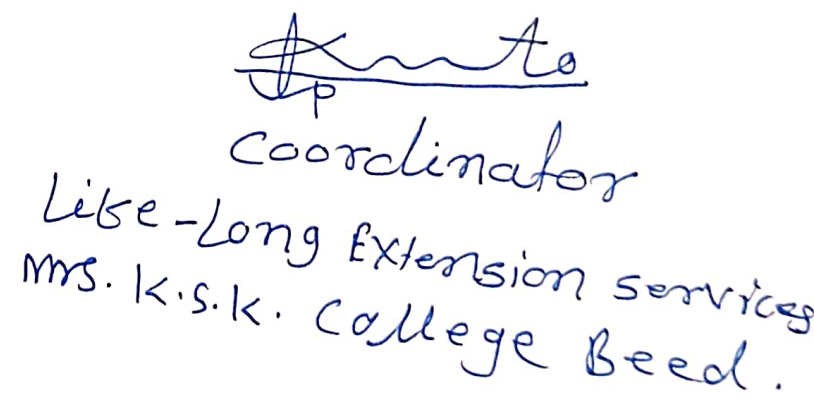 Coordinator
Life-Long Extension services
Mrs. K.S.K. College Beed.